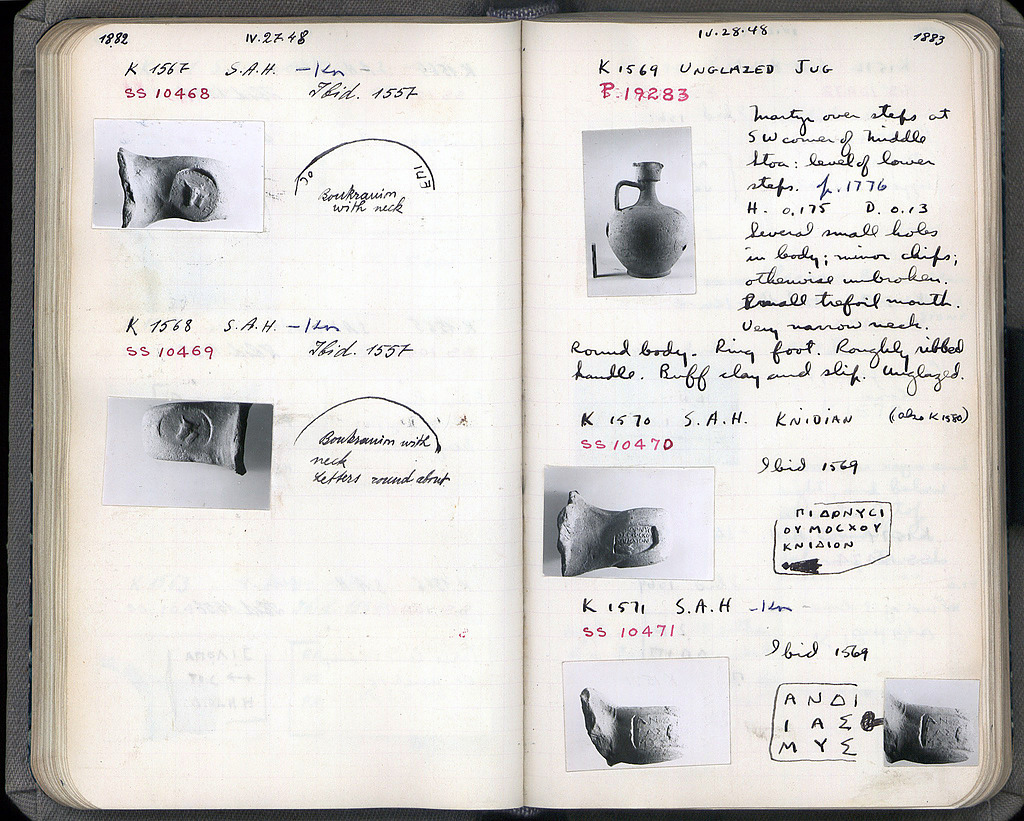 1882 IV.27.48
K 1567 S.A.H. -Kn
SS 10468 Ibid. 1557
ΕΠΙ
Boukranion
with neck
K 1568 S.A.H. -Kn
SS 10469 Ibid. 1557
Boukranion with
neck
Letters round about
IV.28.48 1883
K 1569 UNGLAZED JUG
P.19283
Martyr over steps at
SW corner of Middle
Stoa: level of lower
steps. p.1776
H. 0.175 D. 0.13
Several small holes
in body; minor chips;
otherwise unbroken.
Small trefoil mouth.
Very narrow neck.
Round body. Ring foot. Roughly ribbed
handle. Buff clay and slip. Unglazed.
K 1570 S.A.H. KNIDIAN (also K 1580)
SS 10470
Ibid 1569
ΠΙΔΟΝΥCΙ
ΟΥΜΟCΧΟΥ
ΚΝΙΔΙΟΝ
K 1571 S.A.H -Kn
SS 10471.
Ibid 1569
ΑΝΔΙ
ΙΑΣ
ΜΥΣ